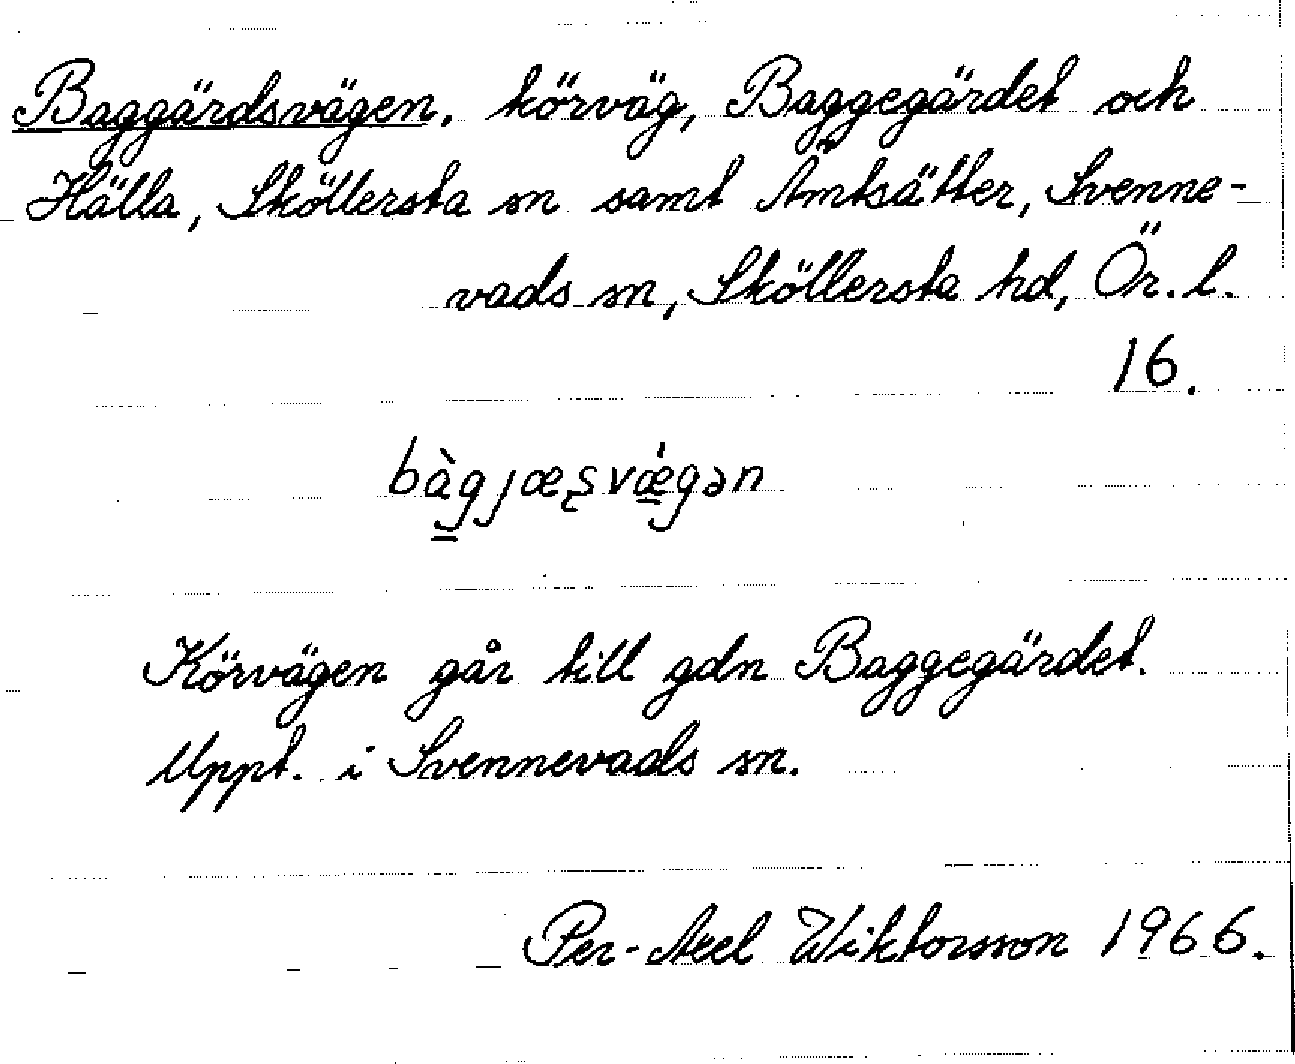 Baggärdsvägen, körväg, Baggegärdet och
Hälla, Sköllersta sn samt Åmtsätter, Svenne-
vads sn, Sköllersta hd, Ör. l.
16.
bàgjæʂvǽgən
Körvägen går till gdn Baggegärdet.
Uppt. i Svennevads sn.
Per-Axel Wiktorsson 1966.